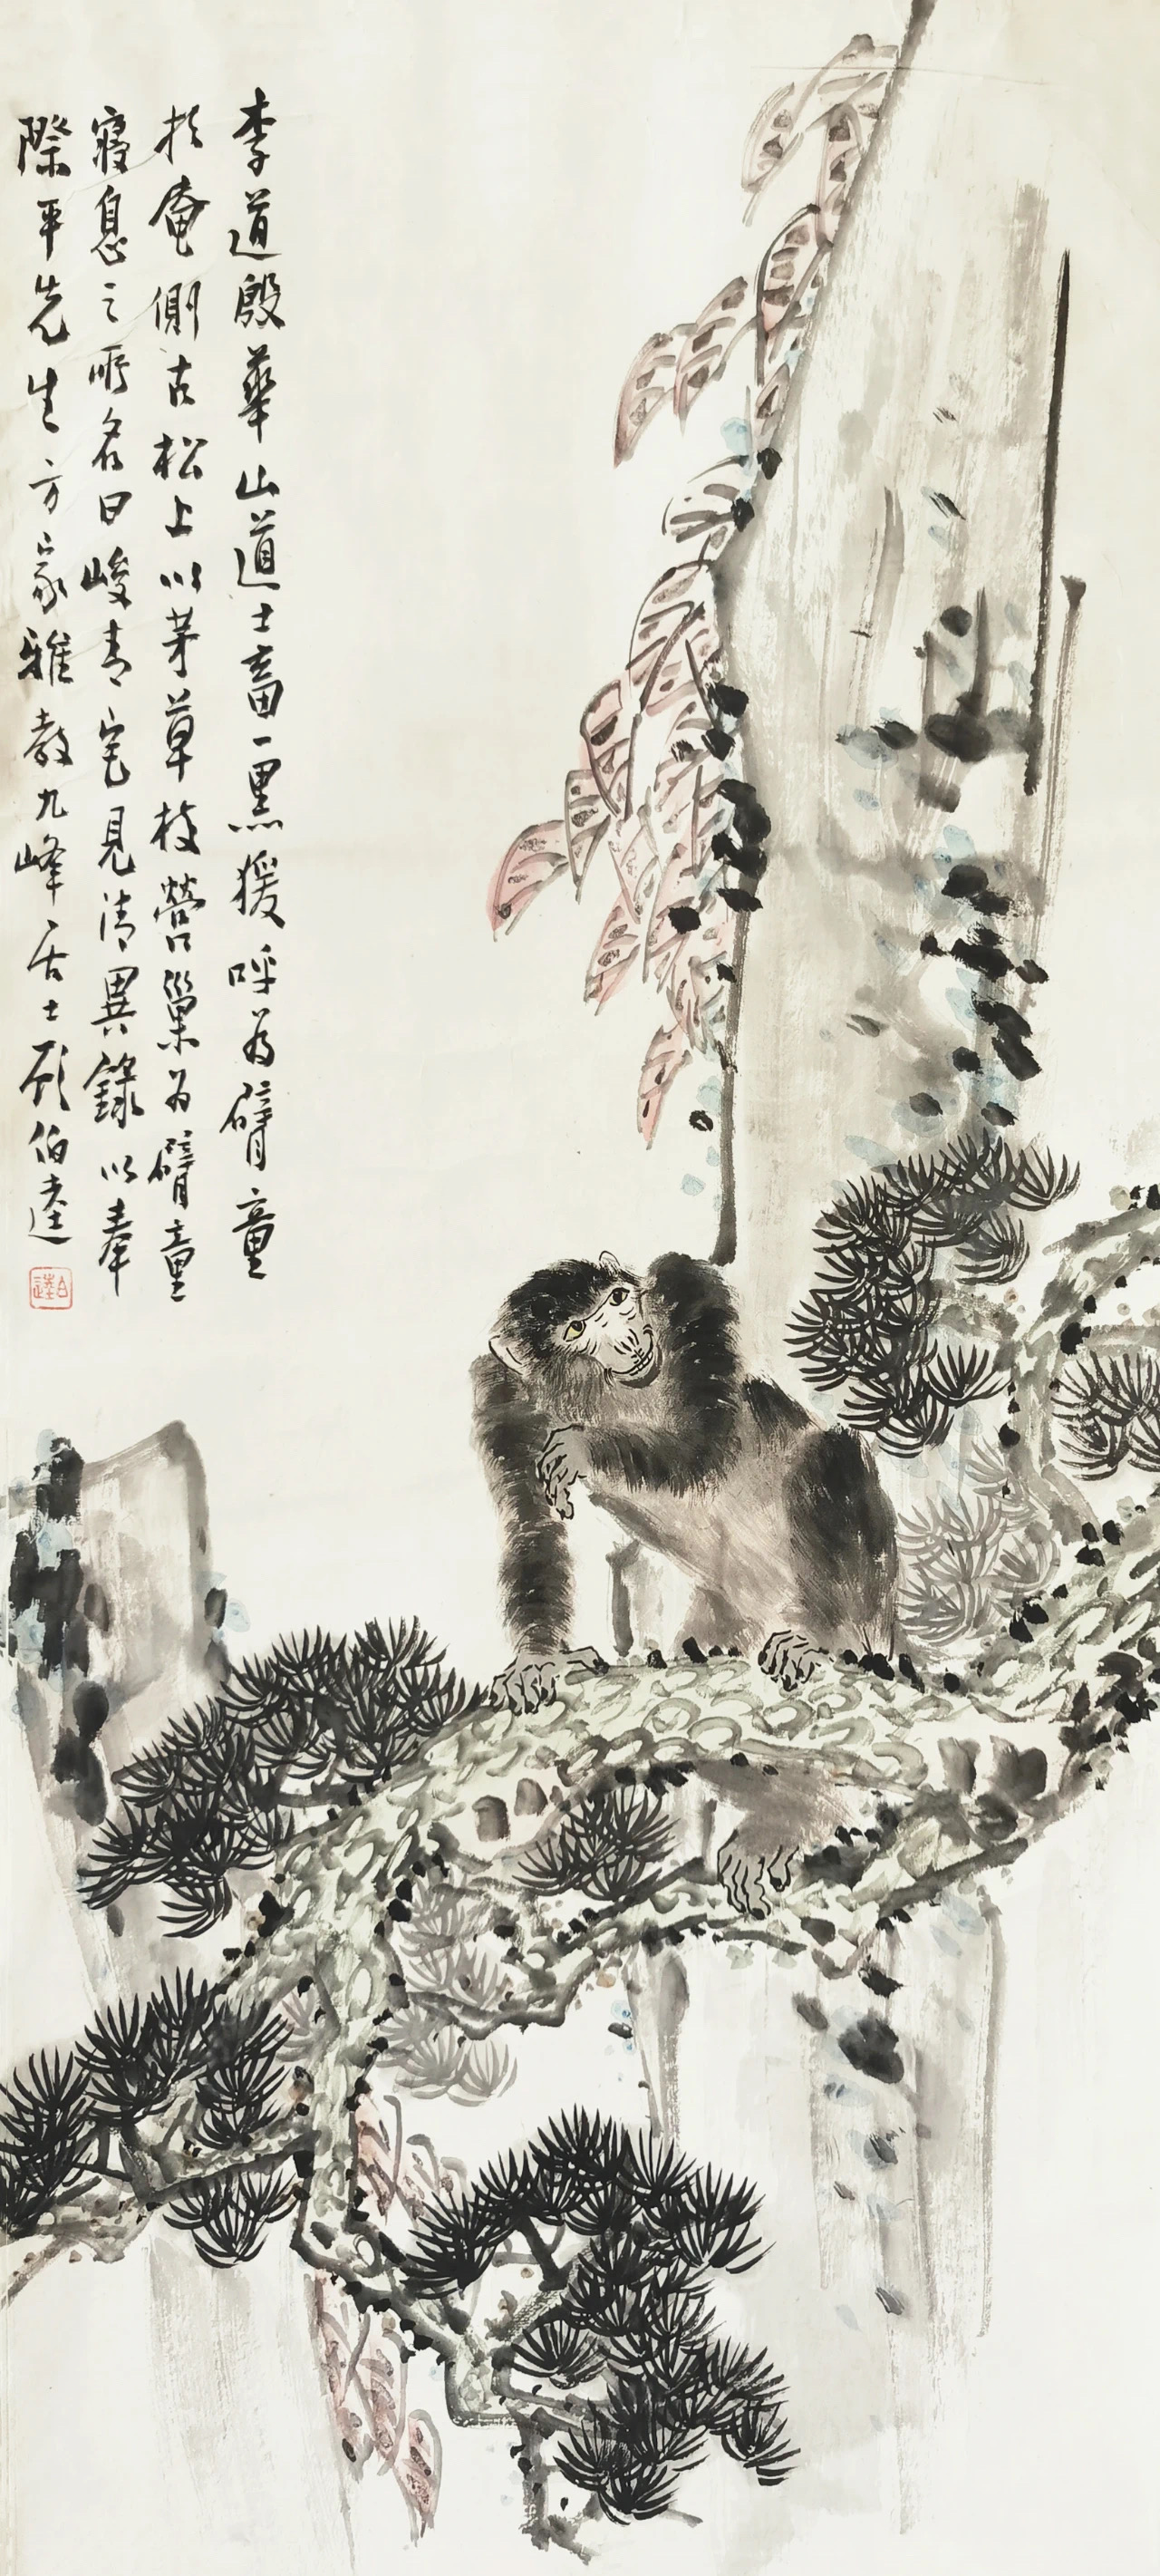 李道殷華山道士畜一黑猨呼為臂童
於庵側古松上以茅草枝營巢為臂童
寢息之所名曰峻青宅見清異錄以奉
際平先生方家雅教九峰居士顧伯逵
伯逵